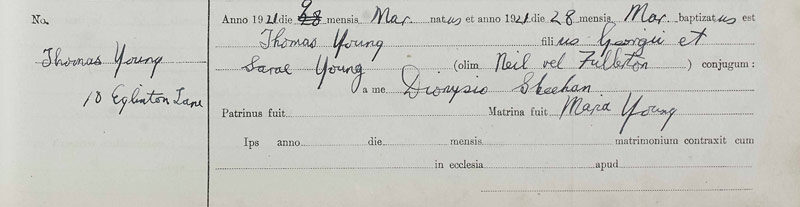 No.
Thomas Young
18 Eglinton Lane
Anno 1921 die 9 28 mensis Mar. natus et anno 1921 die 28 mensis Mar. baptizatus est
Thomas Young filius Georgii et
Sarae Young (olim Neil vel Fullerton) conjugum:
a me Dionysio Sheehan
Patrinus fuit Matrina fuit Mara Young
Ips anno die mensis matrimonium contraxit cum
in ecclesia apud